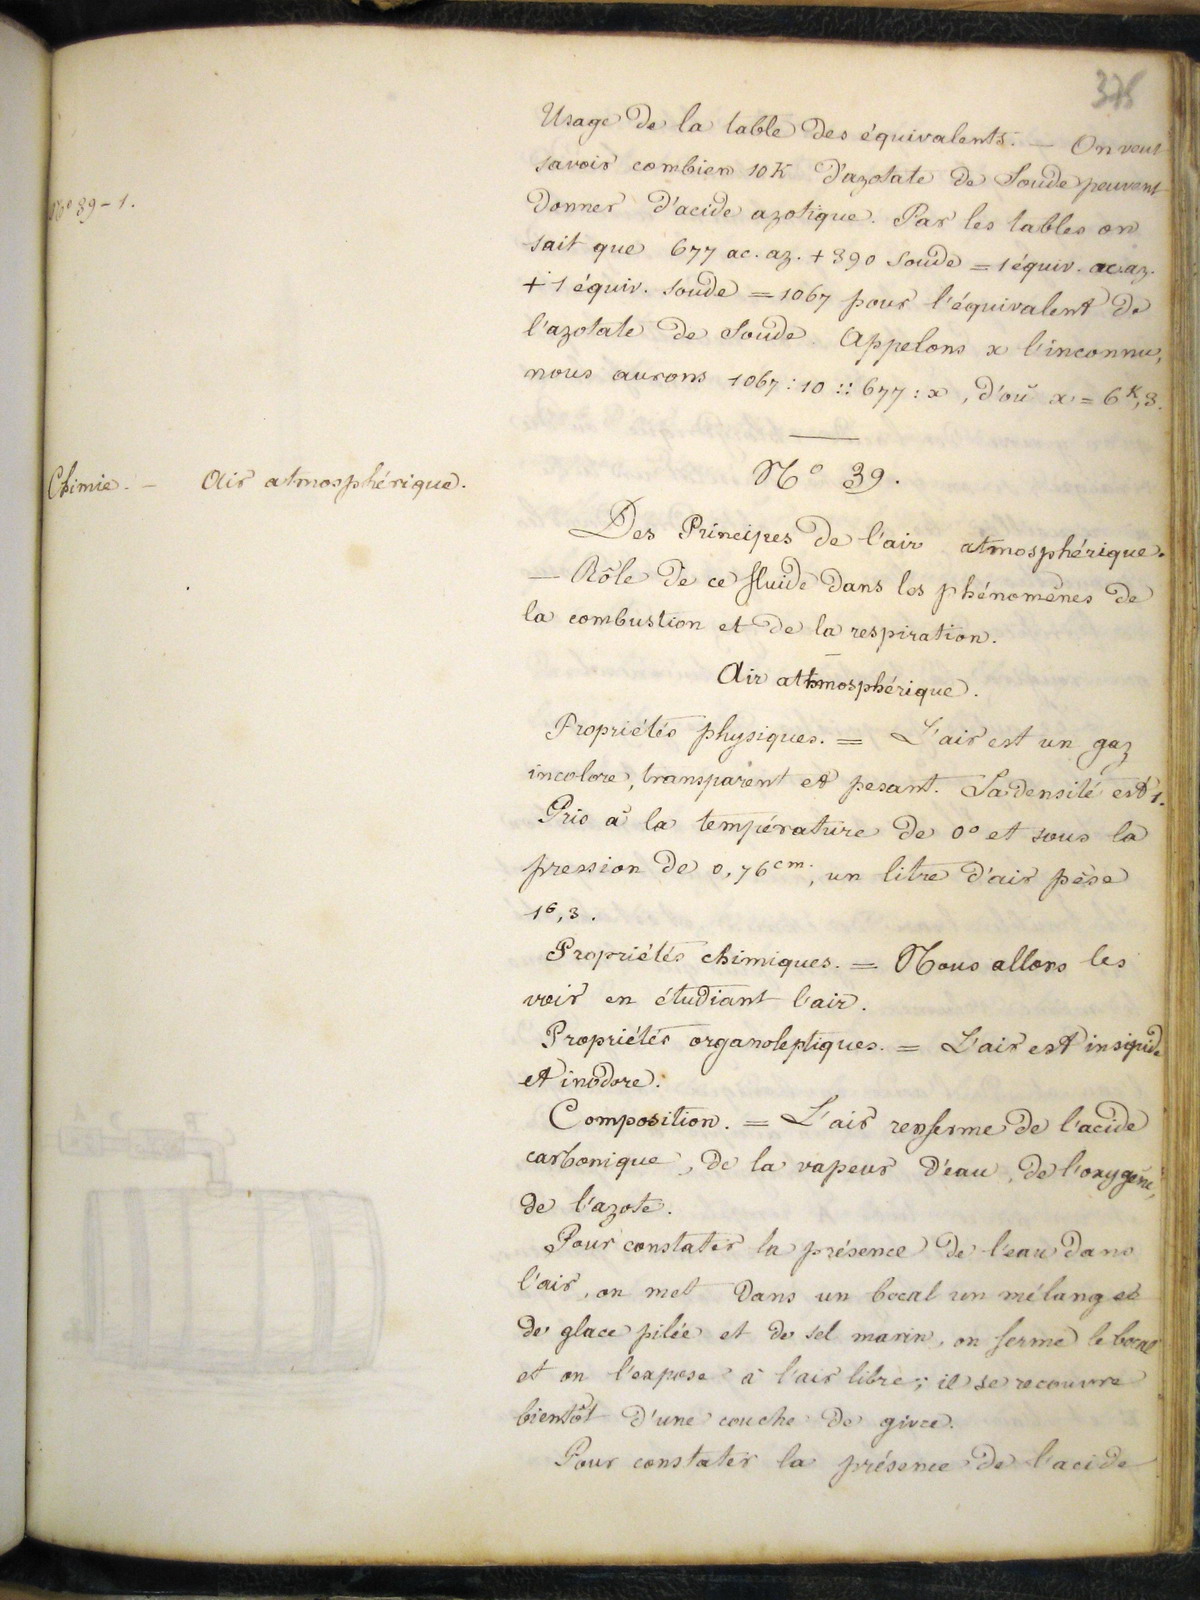 375
Usage de la table des équivalents. — On veut
savoir combien 10K d'azotate de Soude peuvent
donner d'acide azotique. Par les tables on
sait que 677 ac. az. + 390 soude = 1 équiv. ac. az.
+ 1 équiv. soude = 1067 pour l'équivalent de
l'azotate de Soude. Appelons x l'inconnu,
nous aurons 1067 : 10 :: 677 : x, d'où x = 6K,3.
N° 39-1.
Chimie. — Air atmosphérique.
N° 39.
Des Principes de l'air atmosphérique.
— Rôle de ce fluide dans les phénomènes de
la combustion et de la respiration.
Air athmosphérique.
Propriétés physiques. = L'air est un gaz
incolore, transparent et pesant. Sa densité est 1.
Pris à la température de 0° et sous la
pression de 0,76cm, un litre d'air pèse
1G,3.
Propriétés chimiques. = Nous allons les
voir en étudiant l'air.
Propriétés organoleptiques. = L'air est insipide
et inodore.
Composition. = L'air renferme de l'acide
carbonique, de la vapeur d'eau, de l'oxygène,
de l'azote.
Pour constater la présence de l'eau dans
l'air, on met dans un bocal un mélange
de glace pilée et de sel marin, on ferme le bocal
et on l'expose à l'air libre; il se recouvre
bientôt d'une couche de givre.
Pour constater la présence de l'acide